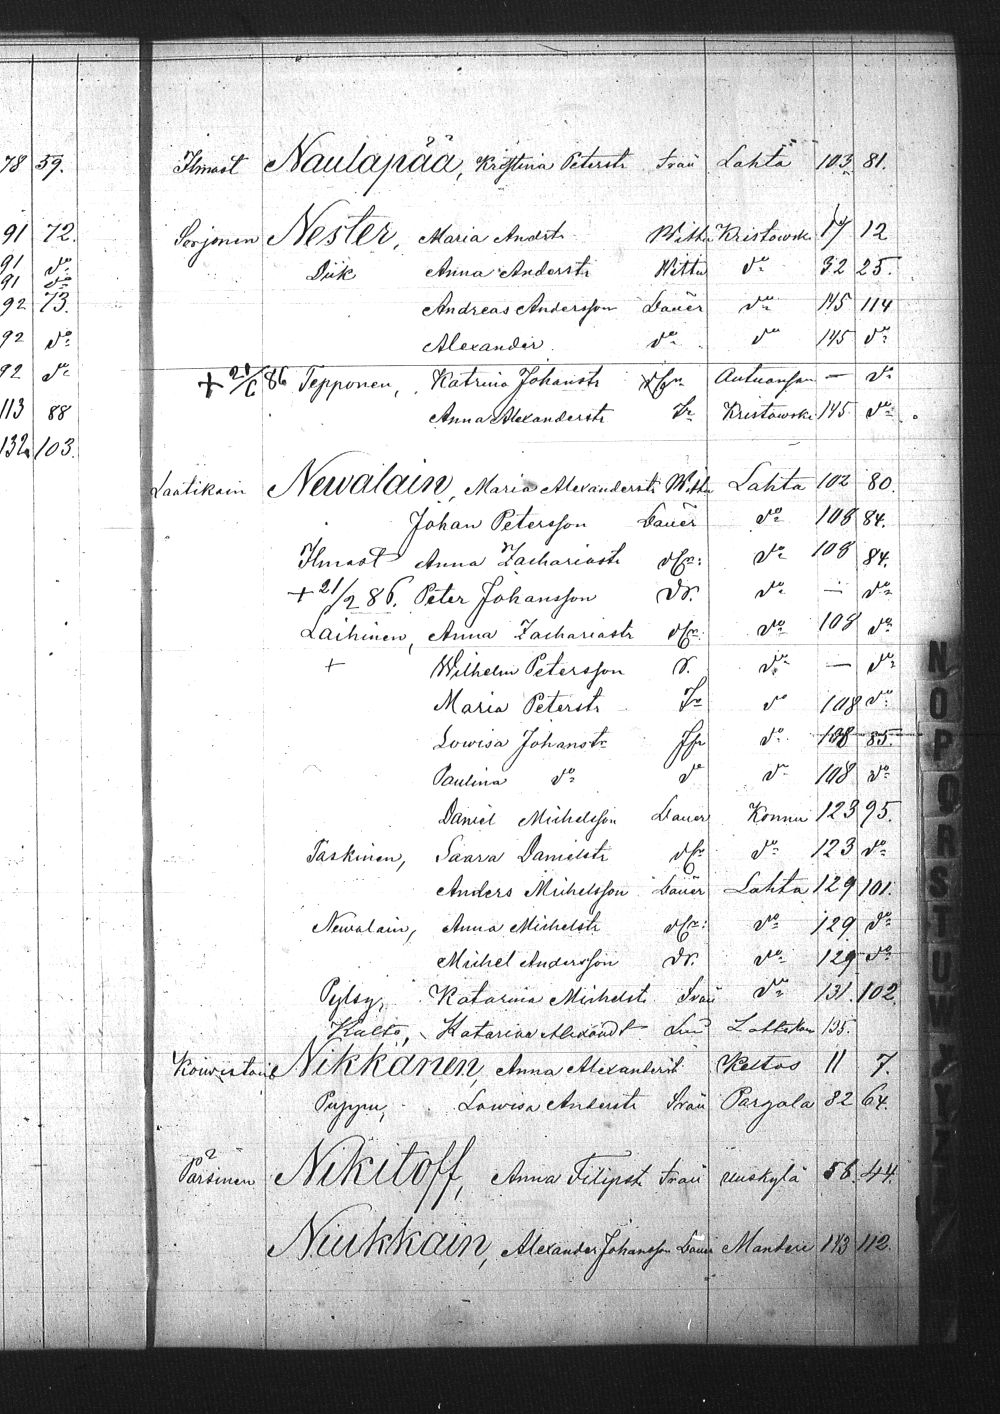 78 59.
Ilmast Naulapää, Kristina Peterstr Frau Lahta 103 81.
91 72.
Sorjonen Nester, Maria Andstr Wittw Kristowski 17 12
91 do
Anna Anderstr Wittw do 32 25.
91 do
92 73.
Andreas Andersson Bauer do 145 114
92 do
Alexander do do 145 do
92 do
+ 86 Tepponen, Katrina Johanstr — do
113 88
Anna Alexanderstr Tr Kristowski 145 do
132 103.
Laatikain Newalain, Maria Alexanderstr Wittw Lahta 102 80.
Johan Petersson Bauer do 108 84.
Ilmast Anna Zachariastr do 108 84.
+ 21/2 86. Peter Johansson do — do
Laihinen, Anna Zachariastr do 108 do
+ Wilhelm Petersson do — do
Maria Peterstr Tr do 108 do
Lowisa Johanstr do 108 85.
Paulina do do do 108 do
Daniel Michelsson Bauer Konnu 123 95.
Taskinen, Saara Danielstr do 123 do
Anders Michelsson Bauer Lahta 129 101.
Newalain, Anna Michelstr do 129 do
Michel Andersson do 129 do
Pylsy, Katarina Michelst Frau do 131. 102
Katarina Alexandt 135.
Kouwistoin Nikkänen, Anna Alexanderst Keltos 11 7.
Puppu, Lowisa Anderstr Frau Pargala 82 64.
Pärsinen Nikitoff, Anna Filipst Frau uuskylä 56. 44.
Niukkain, Alexander Johansson Bauer Manteri 143 112.
N
O
P
Q
R
S
T
U
W
X
Y
Z